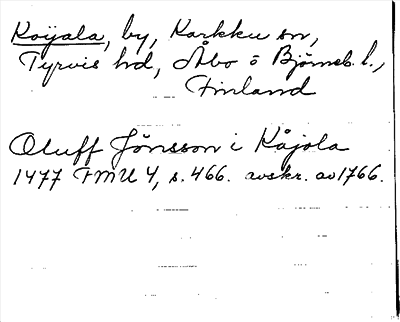 Koijala, by, Karkku sn,
Tyrvis hd, Åbo o Björneb. l.,
Finland
Oluff Jönsson i Kåjola
1477 FMU 4, s. 466. avskr. av 1766.